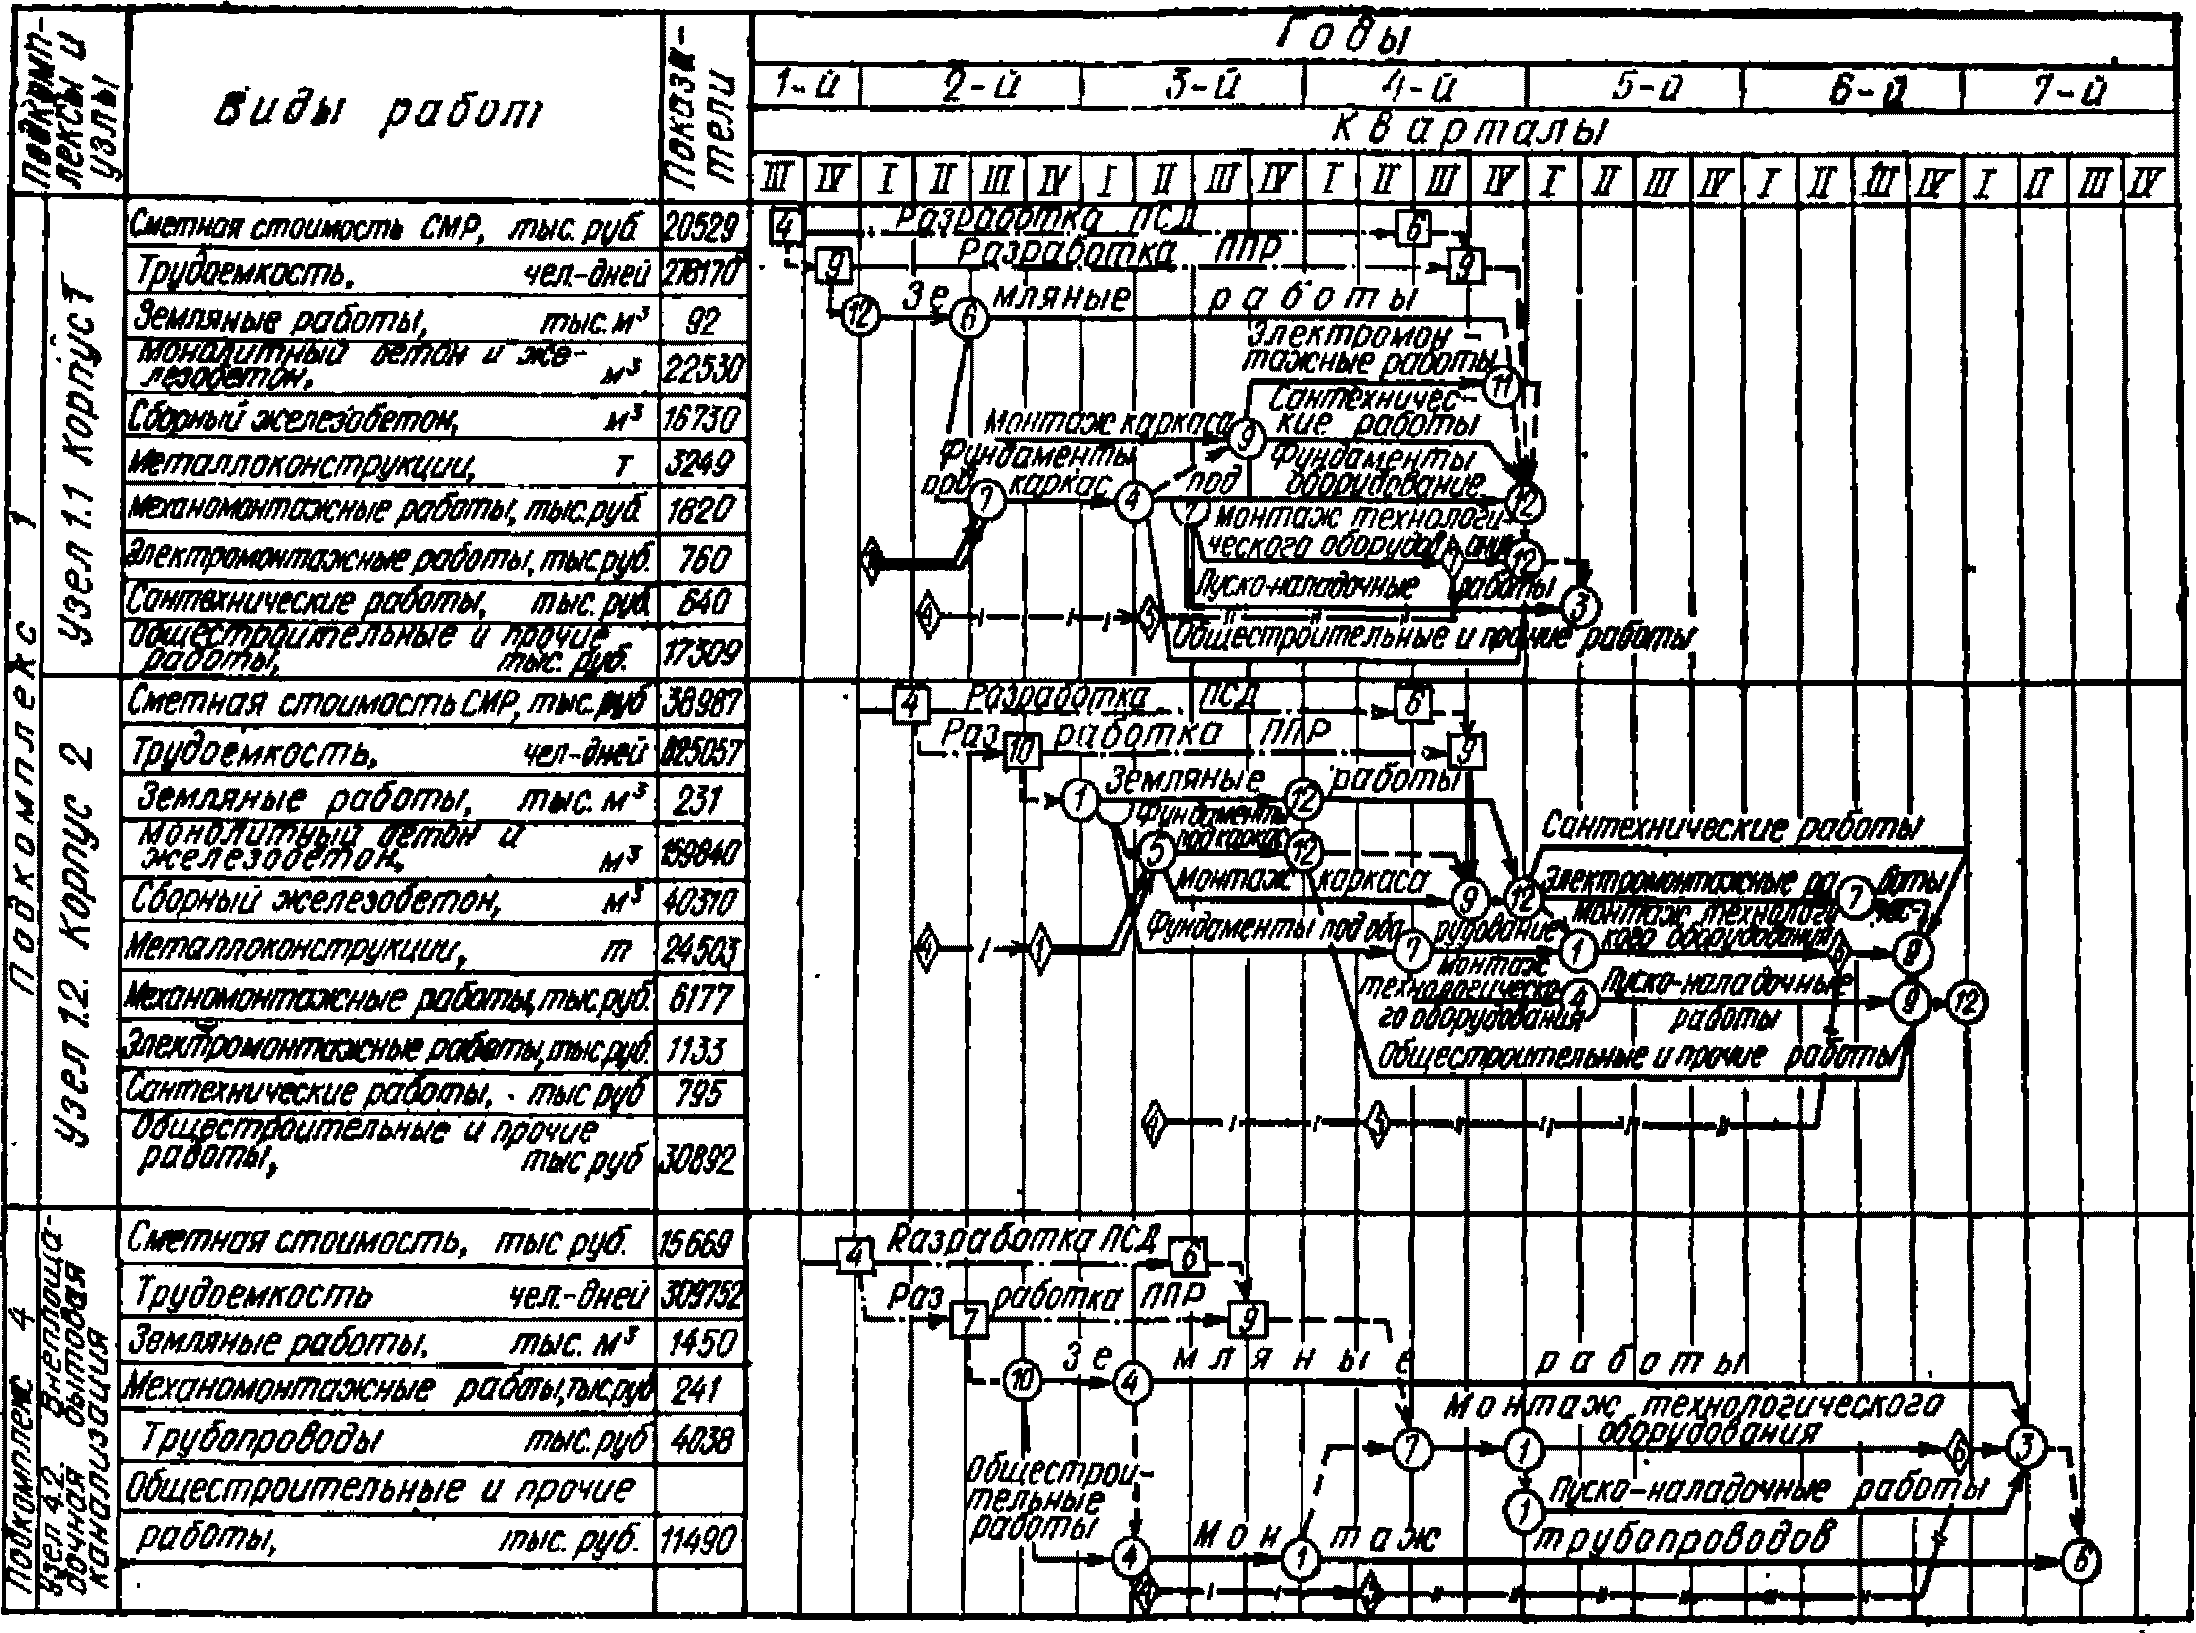 Подкомплексы и узлы
Виды работ
Показатели
Годы
1-й 2-й 3-й 4-й 5-й 6-й 7-й
Кварталы
III IV I II III IV I II III IV I II III IV I II III IV I II III IV I II III IV
Подкомплекс 1
Узел 1.1 Корпус 1
Сметная стоимость СМР, тыс. руб. 20529
Трудоемкость, чел-дней 278170
Земляные работы, тыс. м³ 92
Монолитный бетон и же-
лезобетон, м³ 22530
Сборный железобетон, м³ 16730
Металлоконструкции, т 3249
Механомонтажные работы, тыс. руб. 1820
Электромонтажные работы, тыс. руб. 760
Сантехнические работы, тыс. руб. 640
Общестроительные и прочие
работы, тыс. руб. 17309
4 Разработка ПСД 6
9 Разработка ППР 9
12 Зе 6 мляные работы
Электромон-
тажные работы 11
Сантехничес-
Монтаж каркаса 9 кие работы
Фундаменты Фундаменты
под 7 каркас 4 под оборудование 12
7 Монтаж технологи-
ческого оборудования 12
Пуско-наладочные работы 3
Общестроительные и прочие работы
Узел 1.2. Корпус 2
Сметная стоимость СМР, тыс. руб 38987
Трудоемкость, чел-дней
Земляные работы, тыс. м³ 231
Монолитный бетон и
железобетон, м³ 159840
Сборный железобетон, м³ 40310
Металлоконструкции, т 24503
Механомонтажные работы, тыс. руб. 6177
Электромонтажные работы, тыс. руб. 1133
Сантехнические работы, тыс руб 795
Общестроительные и прочие
работы, тыс руб 30892
4 Разработка ПСД 6
Раз 10 работка ППР 9
1 Земляные 12 работы
Фундаменты
5 под каркас 12
Сантехнические работы
Монтаж каркаса 9 12 Электромонтажные ра 7 боты
Фундаменты под обо 7 рудование 1
Монтаж технологичес-
кого оборудования
Монтаж
технологическо-
го оборудования
4 Пуско-наладочные 12
работы
Общестроительные и прочие работы
4 5
Подкомплекс 4
Узел 4.2. Внеплоща-
дочная бытовая
канализация
Сметная стоимость, тыс руб. 15669
Трудоемкость чел.-дней 309752
Земляные работы, тыс. м³ 1450
Механомонтажные работы, тыс. руб 241
Трубопроводы тыс. руб 4038
Общестроительные и прочие
работы, тыс. руб. 11490
4 Разработка ПСД 6
Раз 7 работка ППР 9
Зе мляные работы
10 4
Монтаж технологического
оборудования
7 1 6 3
Общестрои-
тельные
работы
1 Пуско-наладочные работы
4 Мон 1 таж трубопроводов 6